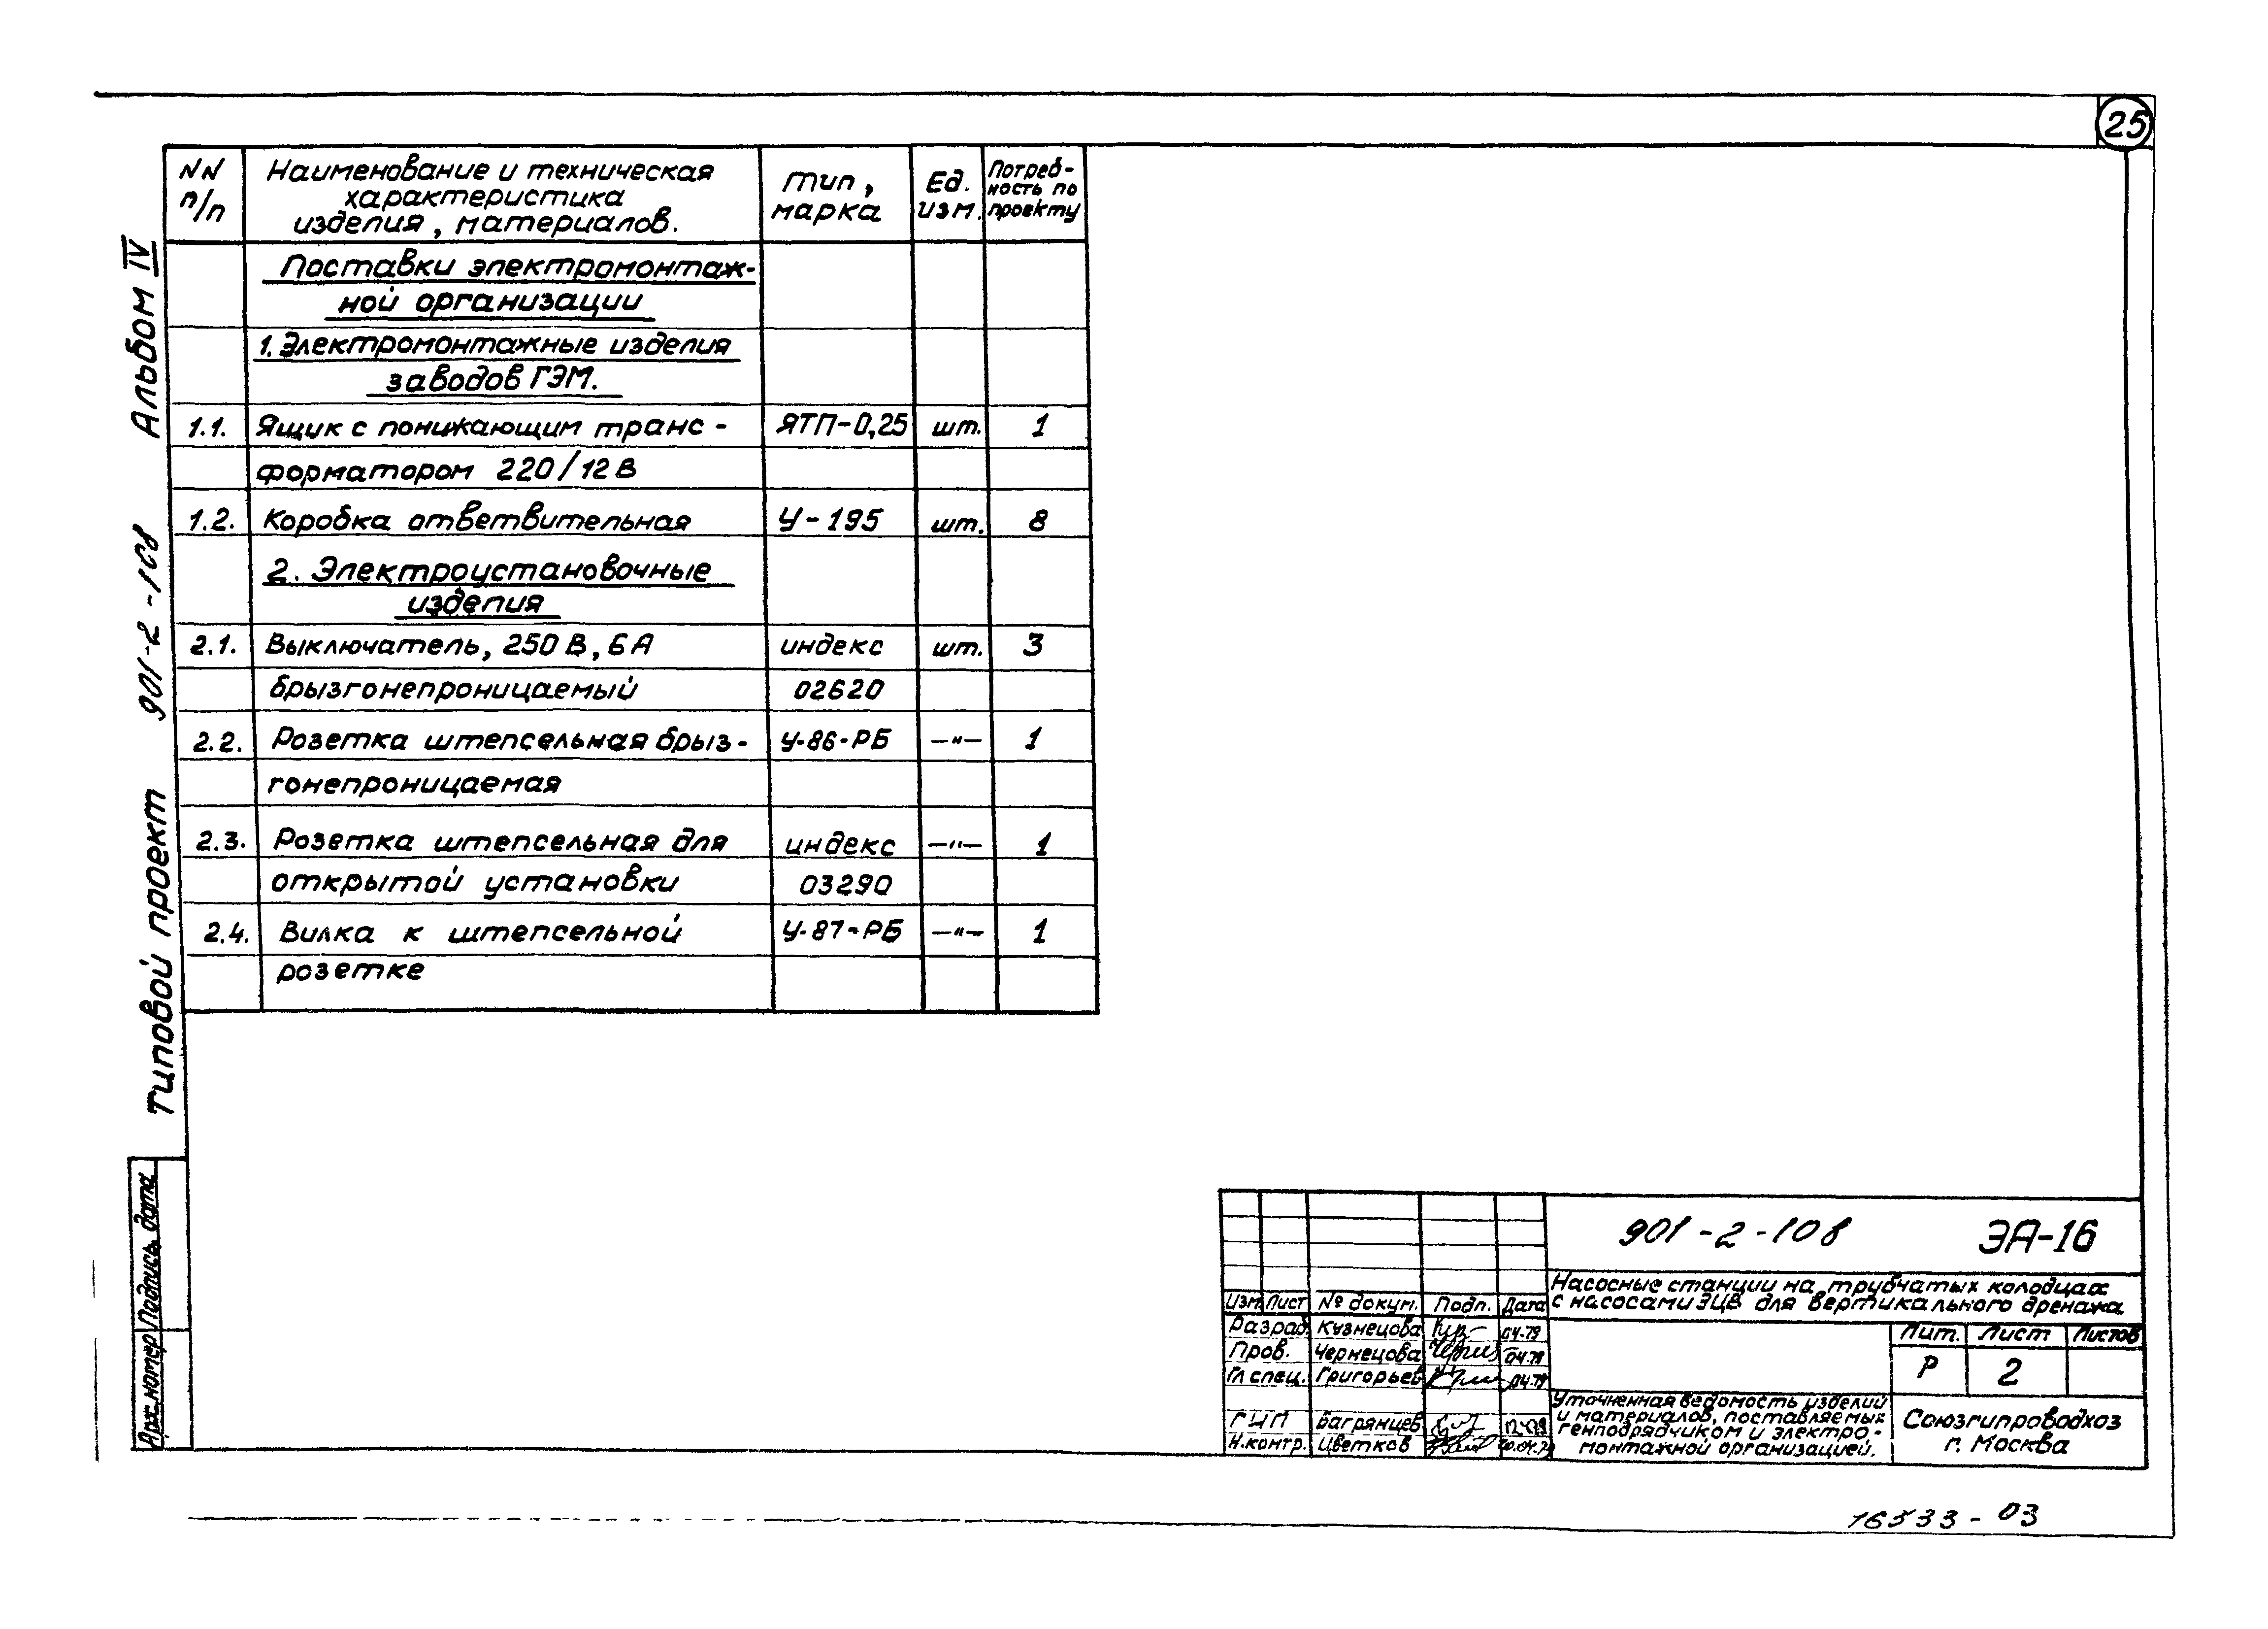 25
NN п/п
Наименование и техническая
характеристика
изделия, материалов.
Тип,
марка
Ед.
изм.
Потреб-
ность по
проекту
Поставки электромонтаж-
ной организации
1. Электромонтажные изделия
заводов ГЭМ.
1.1. Ящик с понижающим транс- ЯТП-0,25 шт. 1
форматором 220/12 В
1.2. Коробка ответвительная У-195 шт. 8
2. Электроустановочные
изделия
2.1. Выключатель, 250 В, 6 А индекс шт. 3
брызгонепроницаемый 02620
2.2. Розетка штепсельная брыз- У-86-РБ —"— 1
гонепроницаемая
2.3. Розетка штепсельная для индекс —"— 1
открытой установки 03290
2.4. Вилка к штепсельной У-87-РБ —"— 1
розетке
Типовой проект 901-2-108 Альбом IV
Арх. номер Подпись, дата
901-2-108 ЭА-16
Насосные станции на трубчатых колодцах
с насосами ЭЦВ для вертикального дренажа
Изм. Лист № докум. Подп. Дата
Разраб. Кузнецова 04.79
Пров. Чернецова 04.79
Гл спец. Григорьев 04.79
ГИП Багрянцев
Н.контр. Цветков
Лит. Лист Листов
Р 2
Уточненная ведомость изделий
и материалов, поставляемых
генподрядчиком и электро-
монтажной организацией.
Союзгипроводхоз
г. Москва
16533-03